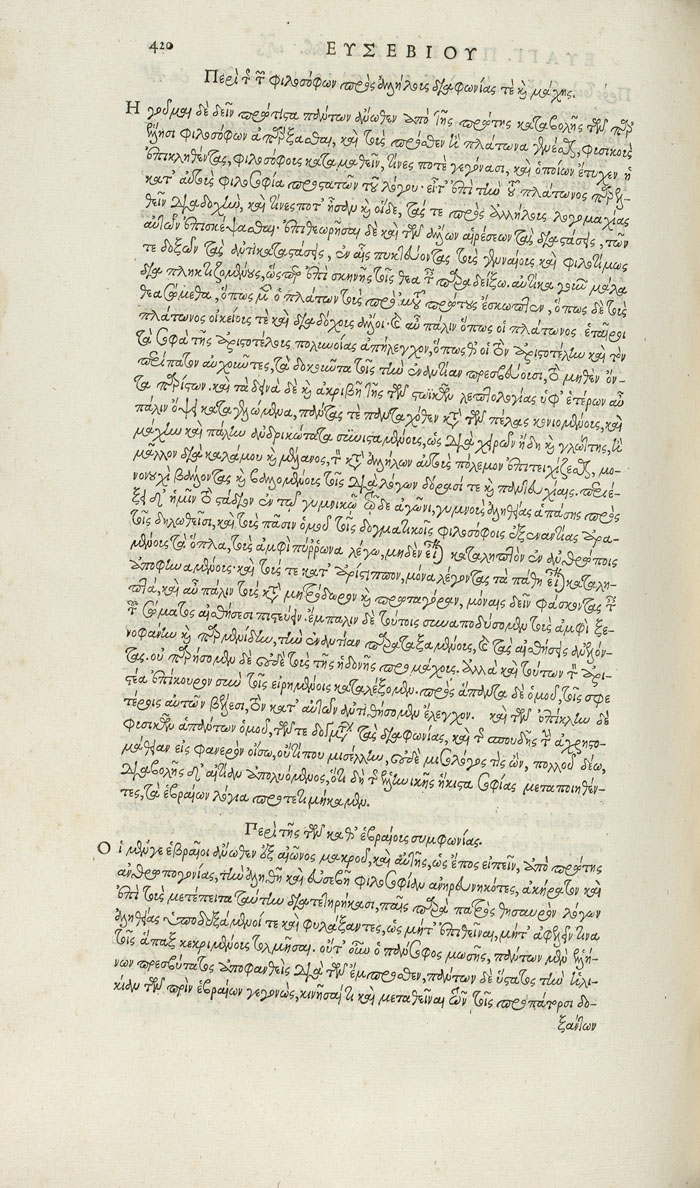 420
ΕΥΣΕΒΙΟΥ
Περὶ τῆς τῶν φιλοσόφων πρὸς ἀλλήλους διαφωνίας τὲ καὶ μάχης.
Ηγοῦμαι δὲ δεῖν πρώτιστα πάντων ἄνωθεν ἀπὸ τῆς πρώτης καταβολῆς τῶν παρ'
ἕλλησι φιλοσόφων ἀπάρξασθαι, καὶ τοὺς πρόσθεν ἢ πλάτωνα γενέσθαι, φυσικοὺς
ἐπικληθέντας, φιλοσόφους καταμαθεῖν, τίνες ποτὲ γεγόνασι, καὶ ὁποίων ἔτυχεν ἡ
κατ' αὐτοὺς φιλοσοφία προστατῶν τοῦ λόγου· εἶτ' ἐπὶ τὴν τοῦ πλάτωνος παρελ-
θεῖν διαδοχὴν, καὶ τίνες ποτ' ἦσαν καὶ οἵδε, τάς τε πρὸς ἀλλήλους λογομαχίας
αὐτῶν ἐπισκέψασθαι· ἐπιθεωρῆσαι δὲ καὶ τῶν ἄλλων αἱρέσεων τὰς διαστάσεις, τῶν
τε δοξῶν τὰς ἀντικαταστάσεις, ἐν αἷς πυκτεύοντας τοὺς γενναίους καὶ φιλοτίμως
διαπληκτιζομένους, ὥσπερ ἐπὶ σκηνῆς τοῖς θεαταῖς παραδείξω. αὐτίκα γοῦν μάλα
θεασώμεθα, ὅπως μὲν ὁ πλάτων τοὺς πρὸ αὐτοῦ πρώτους ἔσκωπτεν, ὅπως δὲ τοὺς
πλάτωνος οἰκείους τὲ καὶ διαδόχους ἄλλοι· καὶ αὖ πάλιν ὅπως οἱ πλάτωνος ἑταῖροι
τὰ σοφὰ τῆς ἀριστοτέλους πολυνοίας ἀπήλεγχον, ὅπως θ' οἱ τὸν ἀριστοτέλην καὶ τὸν
περίπατον αὐχοῦντες, τὰ δοκοῦντα τοῖς τὴν ἐναντίαν πρεσβεύουσι, τὸ μηθὲν ὄν-
τα παρίστων. καὶ τὰ δεινὰ δὲ καὶ ἀκριβῆ τῆς τῶν στωϊκῶν λεπτολογίας ὑφ' ἑτέρων αὖ
πάλιν ὄψει καταγελώμενα, πάντας τὲ πανταχόθεν κατὰ τῶν πέλας κονιομένους, καὶ
μάχην καὶ πάλην ἀνδρικώτατα συνισταμένους, ὡς διὰ χειρῶν ἤδη καὶ γλώττης, ἢ
μᾶλλον διὰ καλάμου καὶ μέλανος, τὸν κατ' ἀλλήλων αὐτοῖς πόλεμον ἐπιτειχίζεσθαι, μο-
νονουχὶ βάλλοντας καὶ βαλλομένους τοῖς διὰ λόγων δόρασί τε καὶ παντευχίαις. περιέ-
ξει δ' ἡμῖν τὸ στάδιον ἐν τῷ γυμνικῷ τῷδε ἀγῶνι, γυμνοὺς ἀληθείας ἁπάσης πρὸς
τοῖς δηλωθεῖσι, καὶ τοὺς πᾶσιν ὁμοῦ τοῖς δογματικοῖς φιλοσόφοις ἐξεναντίας ἀρα-
μένους τὰ ὅπλα, τοὺς ἀμφὶ πύρρωνα λέγω, μηδὲν εἶναι καταληπτὸν ἐν ἀνθρώποις
ἀποφηναμένους· καὶ τούς τε κατ' ἀρίστιππον, μόνα λέγοντας τὰ πάθη εἶναι καταλη-
πτὰ, καὶ αὖ πάλιν τοὺς κατὰ μητρόδωρον καὶ πρωταγόραν, μόναις δεῖν φάσκοντας ταῖς
τοῦ σώματος αἰσθήσεσι πιστεύειν. ἔμπαλιν δὲ τούτοις συναποδύσομεν τοὺς ἀμφὶ ξε-
νοφάνην καὶ παρμενίδην, τὴν ἐναντίαν παραταξαμένους, καὶ τὰς αἰσθήσεις ἀνελόν-
τας. οὐ παρήσομεν δὲ οὐδὲ τοὺς τῆς ἡδονῆς προμάχους. ἀλλὰ καὶ τούτων τὸν ἀρι-
στέα ἐπίκουρον σὺν τοῖς εἰρημένοις καταλέξομεν. πρὸς ἅπαντα δὲ ὁμοῦ, τοῖς σφε
τέροις αὐτῶν βέλεσι, τὸν κατ' αὐτῶν ἀντιθήσομεν ἔλεγχον. καὶ τῶν ἐπίκλην δὲ
φυσικῶν ἁπάντων ὁμοῦ, τῶν τε δογμάτων τὰς διαφωνίας, καὶ τῆς σπουδῆς τὴν ἀχρηστο-
μάθειαν εἰς φανερὸν οἴσω, οὔτι που μισέλλην, οὐδὲ μισόλογός τις ὤν, πολλοῦ δέω,
διαβολῆς δ' αἰτίαν ἀπολυόμενος, ὅτι δὴ τῆς ἑλληνικῆς ἥκιστα σοφίας μεταποιηθέν-
τες, τὰ ἑβραίων λόγια προτετιμήκαμεν.
Περὶ τῆς τῶν καθ' ἑβραίους συμφωνίας.
Οἱ μέν γε ἑβραῖοι ἄνωθεν ἐξ αἰῶνος μακροῦ, καὶ αὐτῆς, ὡς ἔπος εἰπεῖν, ἀπὸ πρώτης
ἀνθρωπογονίας, τὴν ἀληθῆ καὶ εὐσεβῆ φιλοσοφίαν ἀνηρευνηκότες, ἀκήρατον καὶ
ἐπὶ τοὺς μετέπειτα ταύτην διατετηρήκασι, παῖς παρὰ πατρὸς θησαυρὸν λόγων
ἀληθείας ὑποδεξάμενοί τε καὶ φυλάξαντες, ὡς μήτ' ἐπιθεῖναι, μήτ' ἀφελεῖν τινα
τοῖς ἅπαξ κεκριμένοις τολμῆσαι. οὔτ' οὖν ὁ πάνσοφος μωσῆς, πάντων μὲν ἑλλή-
νων πρεσβύτατος ἀποφανθεὶς διὰ τῶν ἔμπροσθεν, πάντων δὲ ὕστατος τὴν ἡλι-
κίαν τῶν πρὶν ἑβραίων γεγονὼς, κινῆσαί τι καὶ μεταθεῖναι τῶν τοῖς προπάτορσι δο-
ξάντων